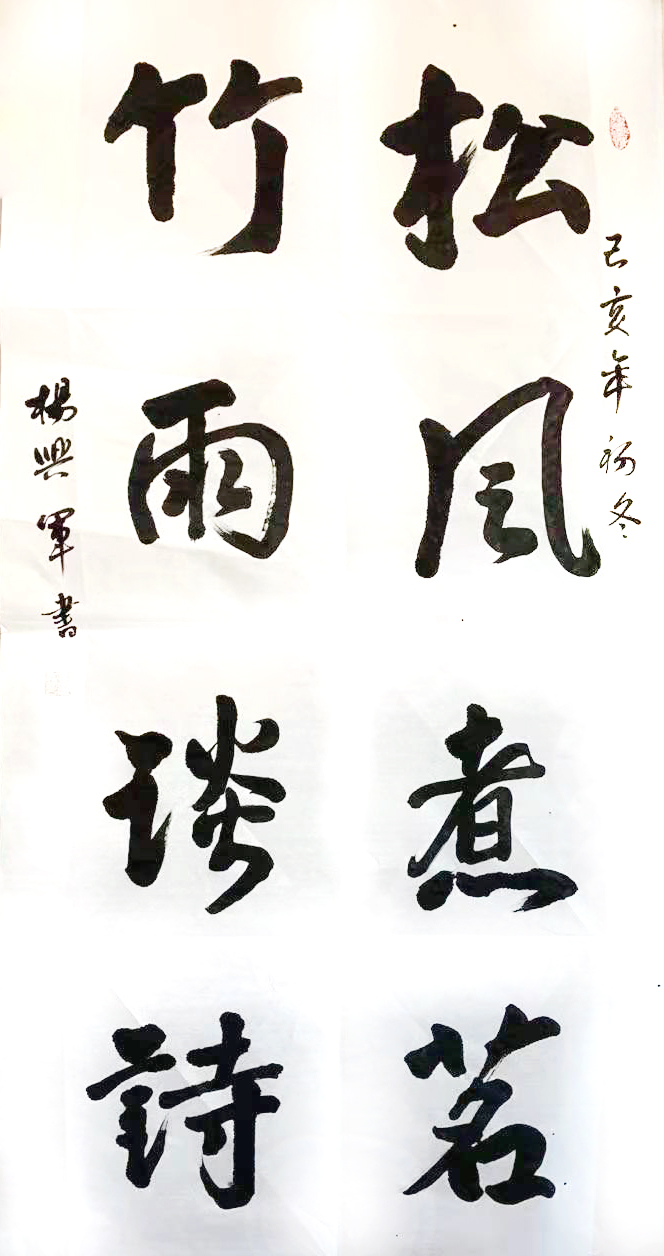 己亥年初冬
松风煮茗
竹雨談詩
楊興軍書